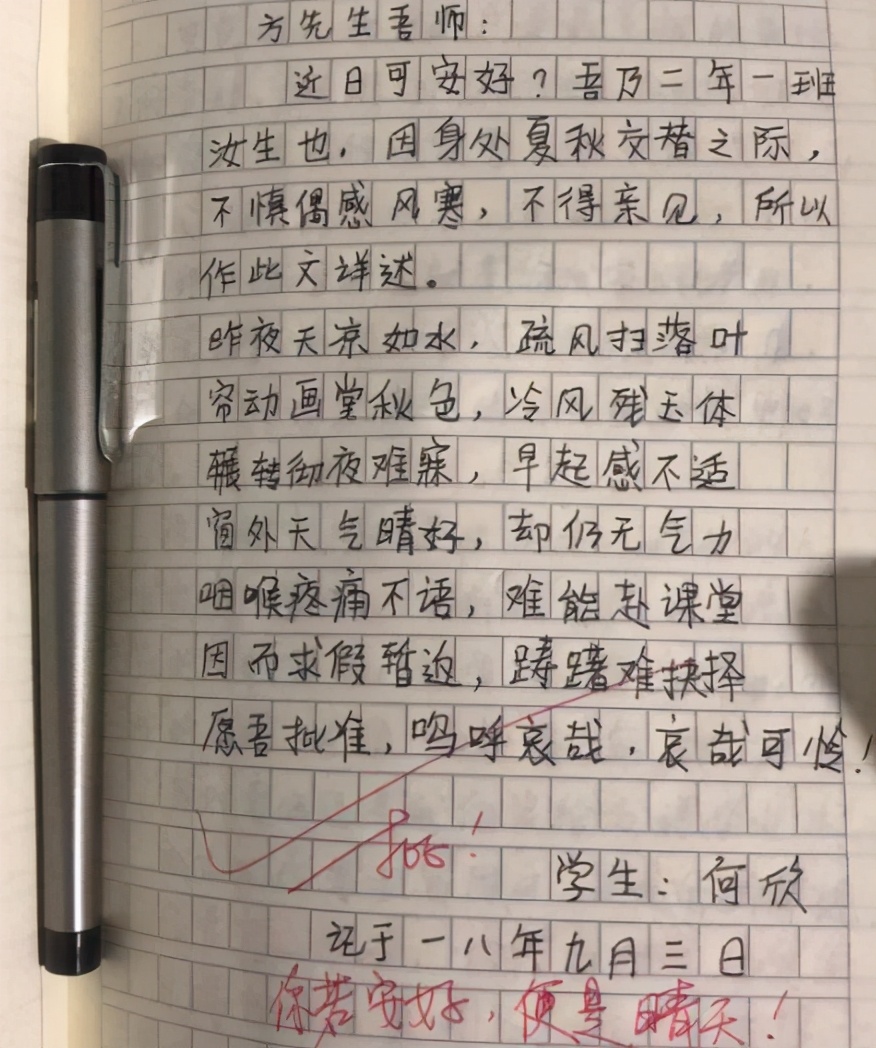 方先生吾师：
近日可安好？吾乃二年一班
汝生也，因身处夏秋交替之际，
不慎偶感风寒，不得亲见，所以
作此文详述。
昨夜天凉如水，疏风扫落叶
帘动画堂秋色，冷风残玉体
辗转彻夜难寐，早起感不适
窗外天气晴好，却仍无气力
咽喉疼痛不语，难能赴课堂
因而求假暂返，踌躇难抉择
愿吾批准，呜呼哀哉，哀哉可怜！
批！
学生：何欣
记于一八年九月三日
你若安好，便是晴天！